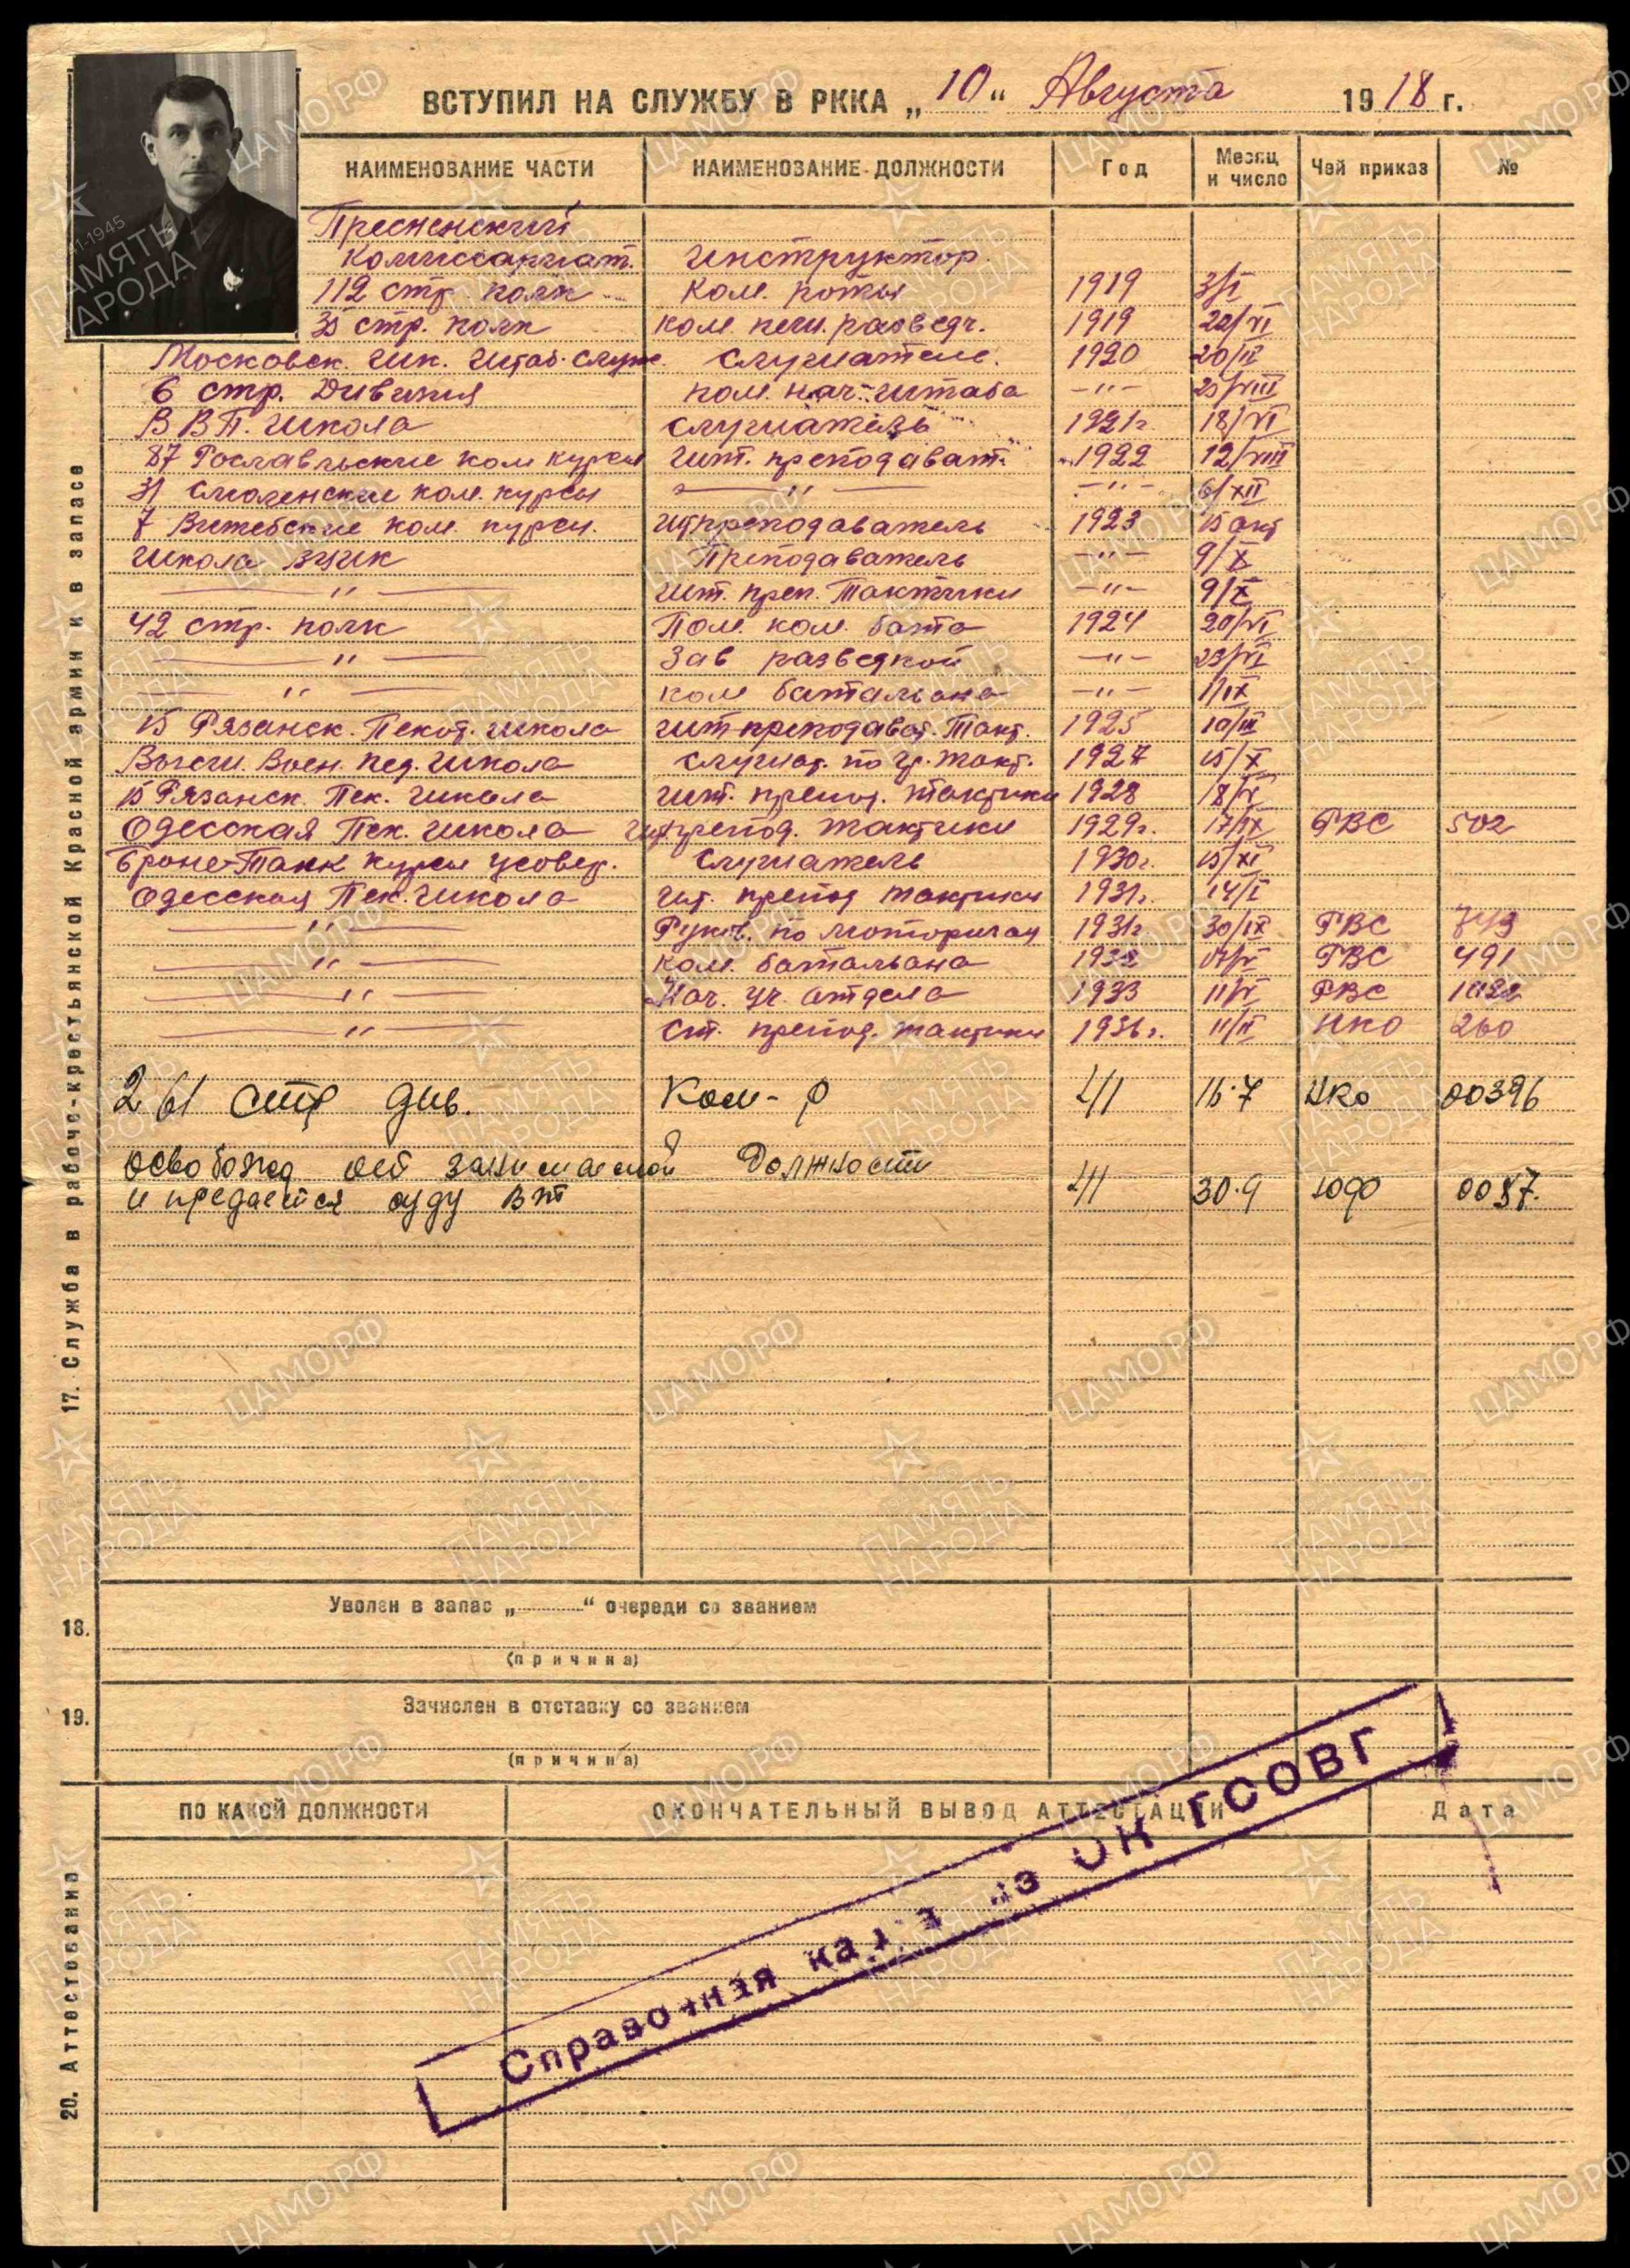 ВСТУПИЛ НА СЛУЖБУ В РККА „10“ Августа 1918 г.
НАИМЕНОВАНИЕ ЧАСТИ НАИМЕНОВАНИЕ ДОЛЖНОСТИ Год Месяц и число Чей приказ №
Пресненский
Комиссариат. Инструктор
112 стр. полк Ком. роты 1919 3/I
35 стр. полк ком. пеш. разведч. 1919 22/VI
Московск. шк. штаб. служ. слушатель. 1920 20/II
6 стр. Дивизия пом. нач. штаба —"— 25/VIII
В В П. школа слушатель 1921г. 18/VI
87 Рославльские ком курсы шт. преподават. 1922 12/VIII
31 Смоленские ком. курсы —"— —"— 6/XII
7 Витебские ком. курсы. шт преподаватель 1923 15 окт
школа ВЦИК Преподаватель —"— 9/X
—"— шт. преп. Тактики —"— 9/X
42 стр. полк Пом. ком. бата 1924 20/VI
—"— Зав разведкой —"— 23/VI
—"— ком батальона —"— 1/IX
15 Рязанск. Пехот. школа шт преподават. Такт. 1925 10/III
Высш. Воен. пед. школа слушат. по гр. такт. 1927 15/X
15 Рязанск. Пех. школа шт. препод. тактики 1928
Одесская Пех. школа шт препод. тактики 1929г. 17/IX РВС 502
Броне-Танк курсы усовер. слушатель 1930г. 15/XI
Одесская Пех. школа шт. препод тактики 1931г. 14/I
—"— Руков. по моторизац 1931г. 30/IX РВС
—"— ком. батальона 1932 РВС 491
—"— Нач. уч. отдела 1933 РВС
—"— Ст. препод. тактики 1936г. 11/II НКО 260
261 стр див. Ком-р 41 16.7 НКО 00396
освобожд от занимаемой Должности
и предается суду ВТ 41 30.9 ЮФ 0087.
17. Служба в рабоче-крестьянской Красной армии и в запасе
18. Уволен в запас „ “ очереди со званием
(причина)
19. Зачислен в отставку со званием
(причина)
ПО КАКОЙ ДОЛЖНОСТИ ОКОНЧАТЕЛЬНЫЙ ВЫВОД АТТЕСТАЦИИ Дата
20. Аттестования
Справочная карта из ОК ГСОВГ
ПАМЯТЬ НАРОДА
ЦАМО.РФ